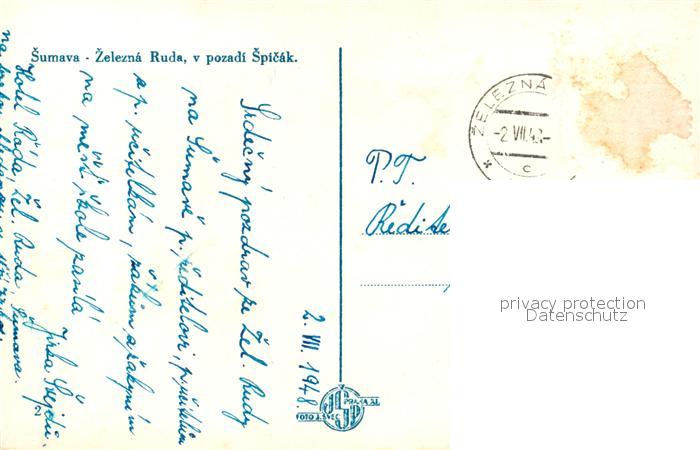 Šumava - Železná Ruda, v pozadí Špičák.
Srdečný pozdrav ze Žel. Rudy
na Šumavě p. řediteli, p. učitelům
a p. učitelkám, žákům a žákyním
na měšť. škole zasílá
Jirka
Hotel Ráda, Žel. Ruda, Šumava.
2. VII. 1948
FOTO J. ŠVEC
PRAHA XI.
ŽELEZNÁ
-2.VII.48-
C
P. T.
Ředite
privacy protection
Datenschutz